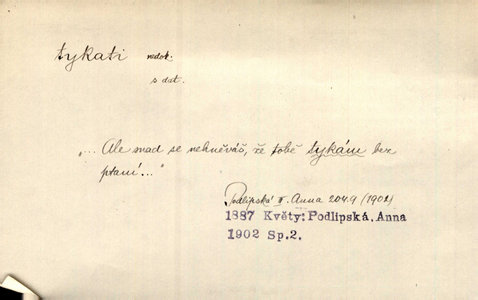 tykati nedok.
s dat.
„... Ale snad se nehněváš, že tobě tykám bez
ptaní..."
Podlipská Anna 204.9 (1902)
1887 Květy: Podlipská, Anna
1902 Sp.2.